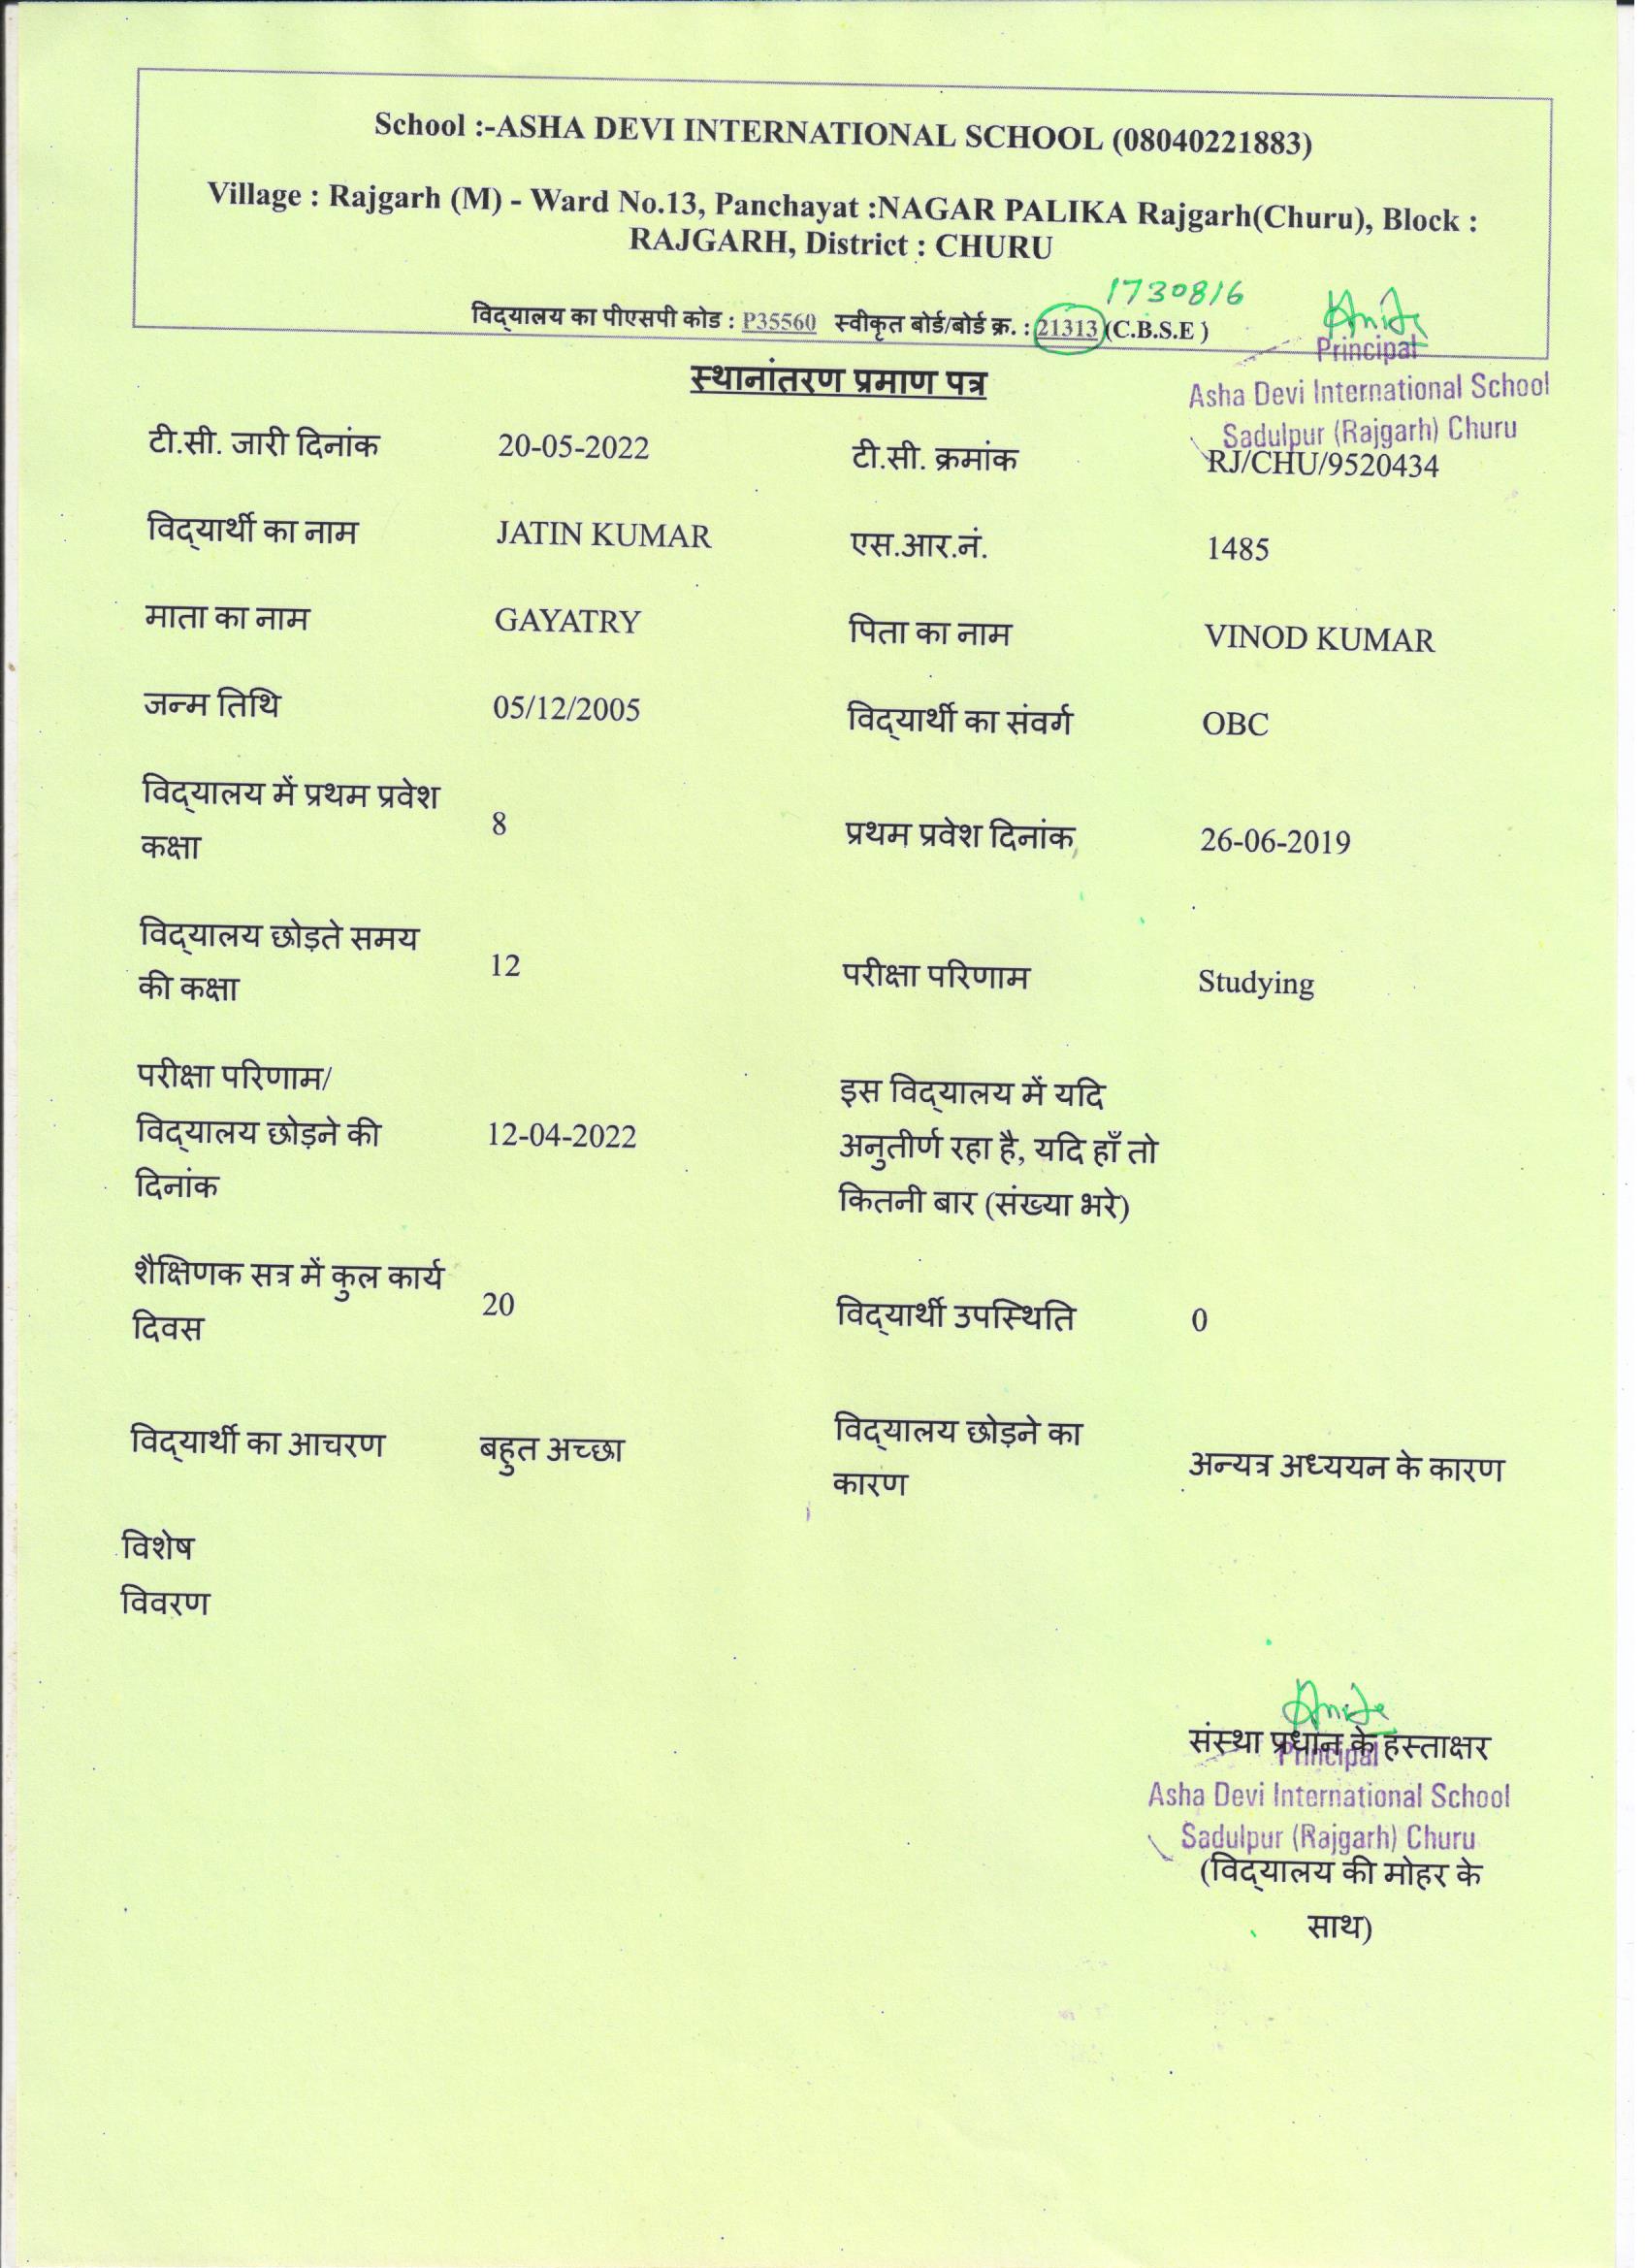 School :-ASHA DEVI INTERNATIONAL SCHOOL (08040221883)
Village : Rajgarh (M) - Ward No.13, Panchayat :NAGAR PALIKA Rajgarh(Churu), Block :
RAJGARH, District : CHURU
1730816
विद्यालय का पीएसपी कोड : P35560 स्वीकृत बोर्ड/बोर्ड क्र. : 21313 (C.B.S.E )
Principal
स्थानांतरण प्रमाण पत्र
Asha Devi International School
Sadulpur (Rajgarh) Churu
टी.सी. जारी दिनांक 20-05-2022 टी.सी. क्रमांक RJ/CHU/9520434
विद्यार्थी का नाम JATIN KUMAR एस.आर.नं. 1485
माता का नाम GAYATRY पिता का नाम VINOD KUMAR
जन्म तिथि 05/12/2005 विद्यार्थी का संवर्ग OBC
विद्यालय में प्रथम प्रवेश
कक्षा
8
प्रथम प्रवेश दिनांक 26-06-2019
विद्यालय छोड़ते समय
की कक्षा
12
परीक्षा परिणाम Studying
परीक्षा परिणाम/
विद्यालय छोड़ने की
दिनांक
12-04-2022
इस विद्यालय में यदि
अनुतीर्ण रहा है, यदि हाँ तो
कितनी बार (संख्या भरे)
शैक्षिणक सत्र में कुल कार्य
दिवस
20
विद्यार्थी उपस्थिति 0
विद्यार्थी का आचरण बहुत अच्छा
विद्यालय छोड़ने का
कारण
अन्यत्र अध्ययन के कारण
विशेष
विवरण
संस्था प्रधान के हस्ताक्षर
Principal
Asha Devi International School
Sadulpur (Rajgarh) Churu
(विद्यालय की मोहर के
साथ)